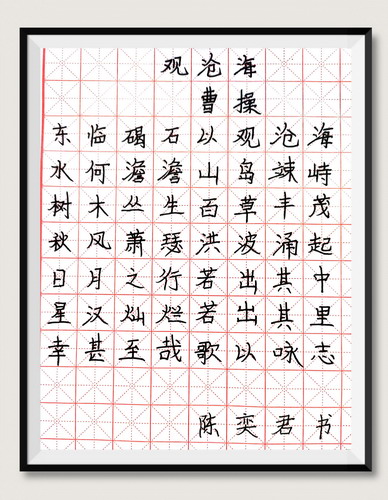 观沧海
曹操
东临碣石以观沧海
水何澹澹山岛竦峙
树木丛生百草丰茂
秋风萧瑟洪波涌起
日月之行若出其中
星汉灿烂若出其里
幸甚至哉歌以咏志
陈奕君书